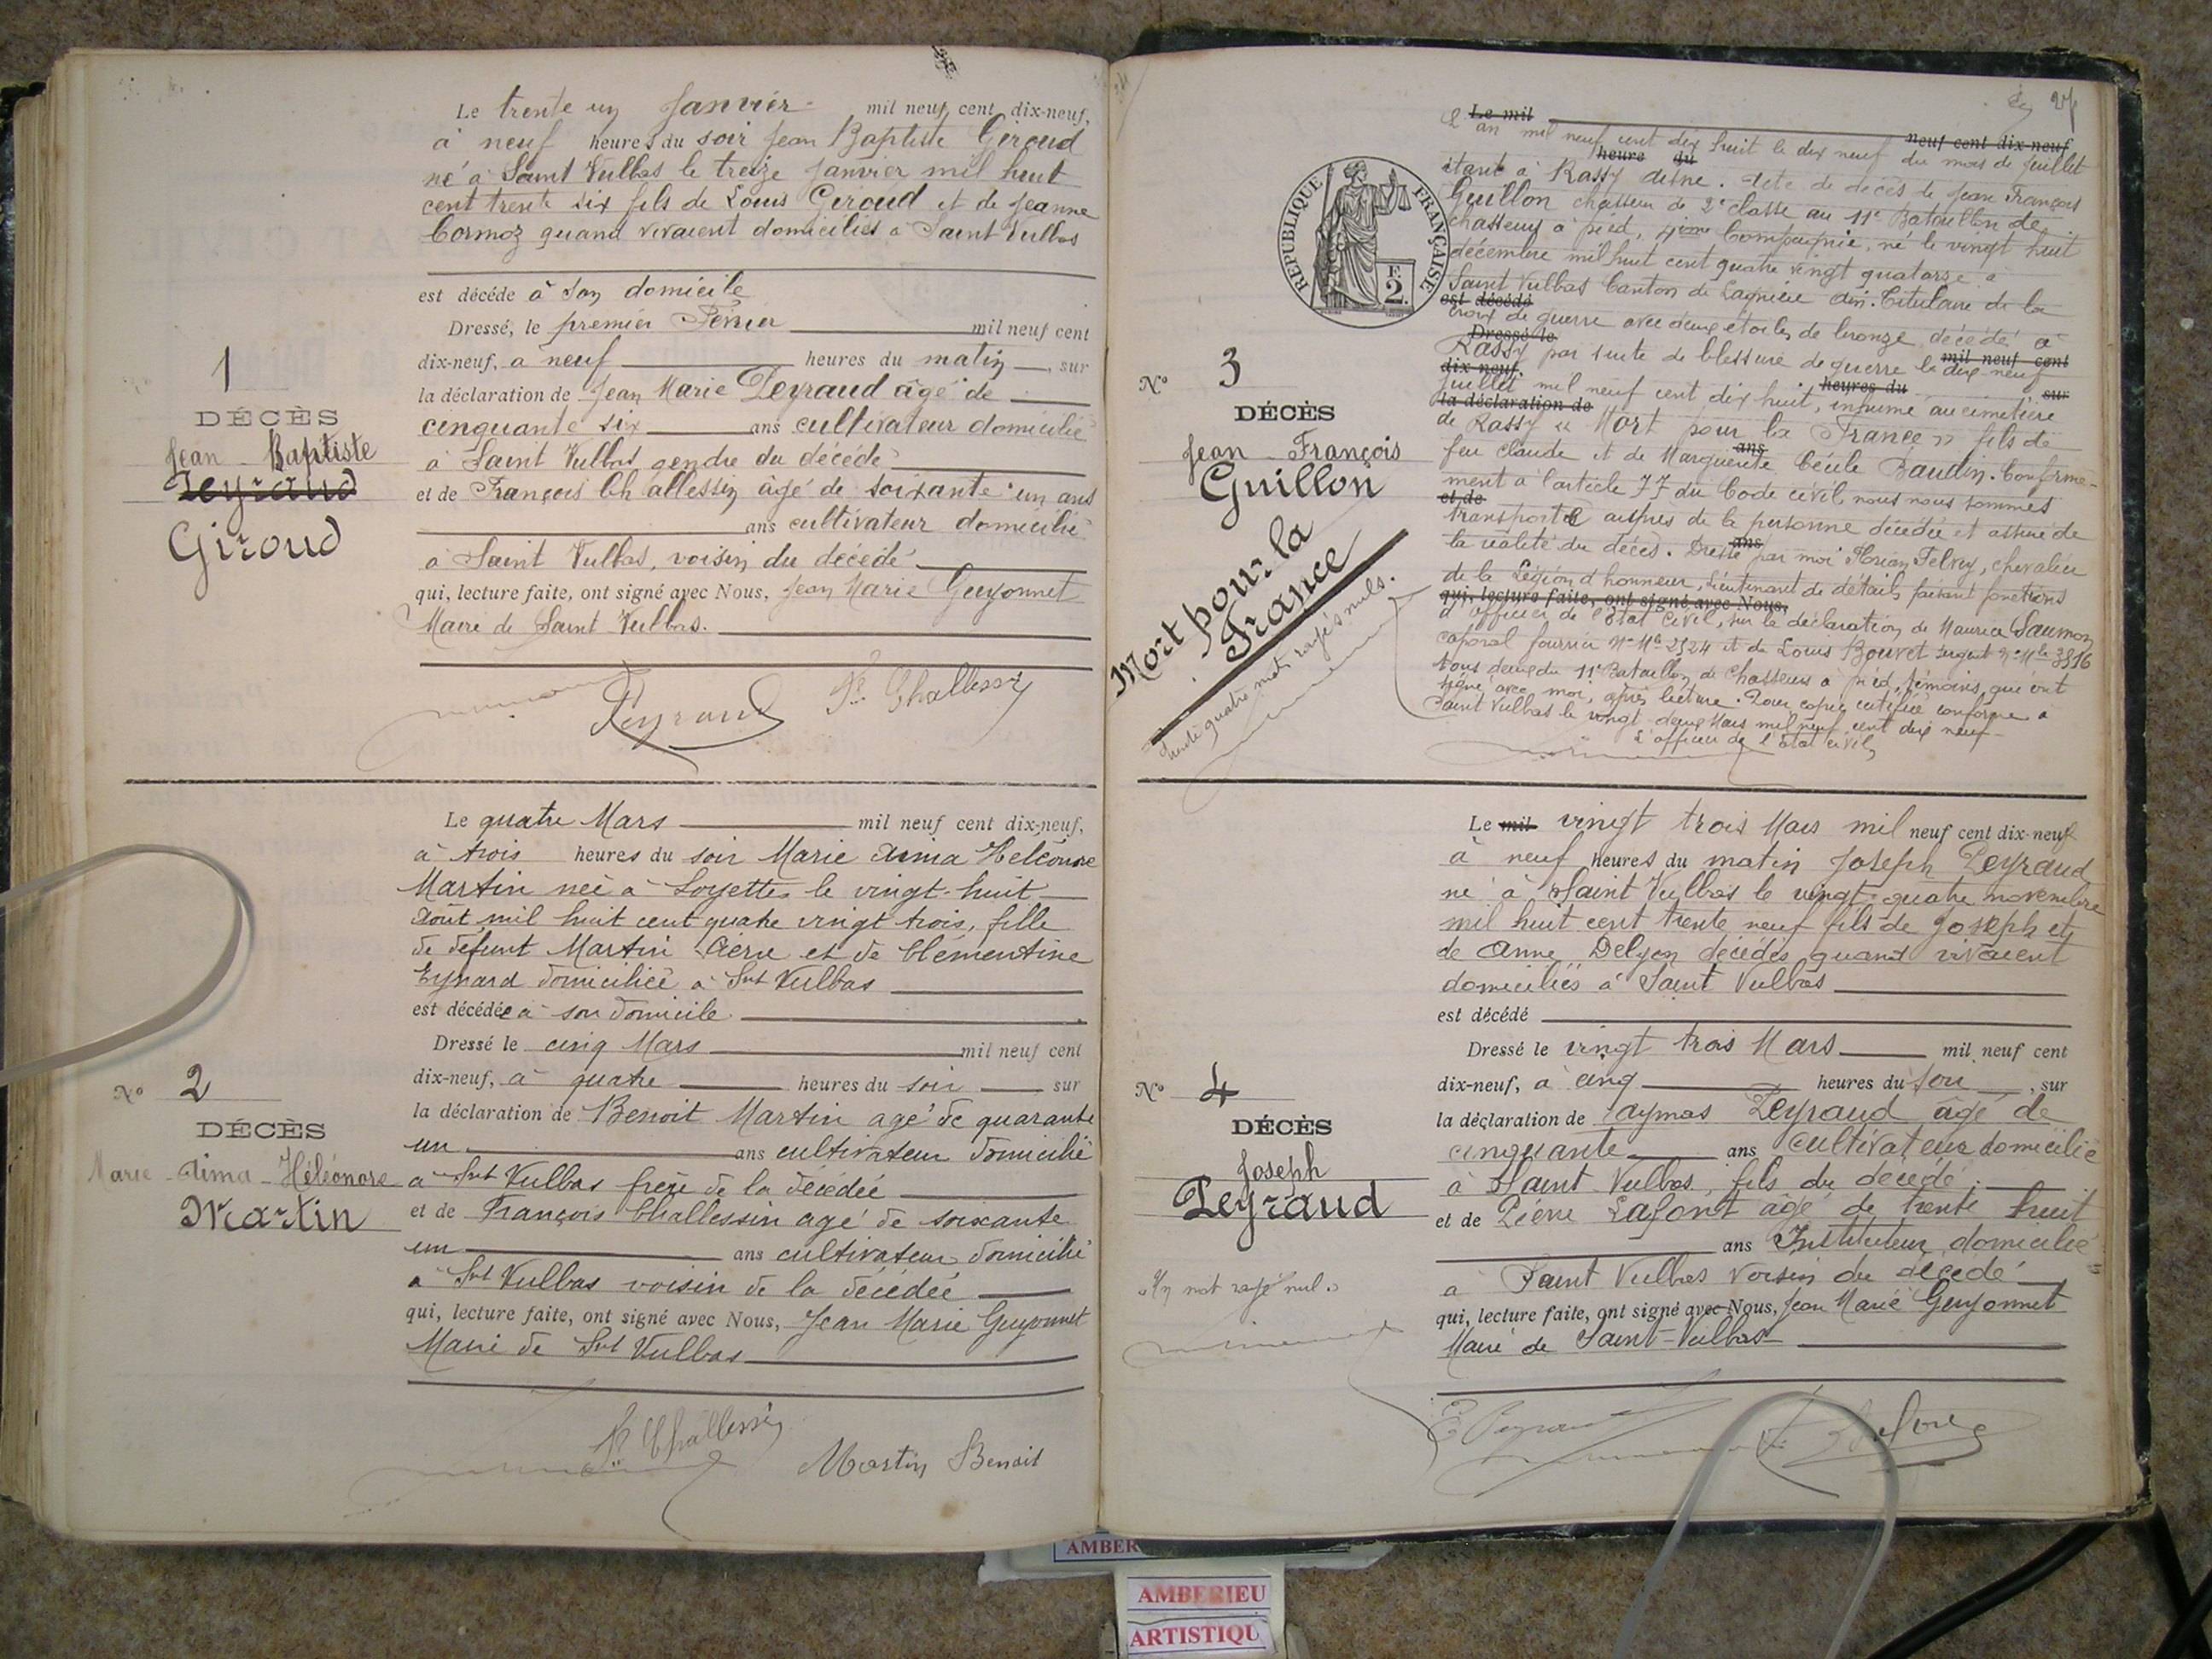 Le trente un Janvier mil neuf cent dix-neuf,
à neuf heures du soir Jean Baptiste Giroud
né à Saint Vulbas le treize Janvier mil huit
cent trente six fils de Louis Giroud et de Jeanne
Cormoz quand vivaient domiciliés à Saint Vulbas
est décédé à son domicile
Dressé, le premier Février mil neuf cent
dix-neuf, a neuf heures du matin, sur
la déclaration de Jean Marie Peyraud âgé de
cinquante six ans cultivateur domicilié
à Saint Vulbas gendre du décédé
et de François Challessin âgé de soixante un ans
ans cultivateur domicilié
à Saint Vulbas, voisin du décédé
qui, lecture faite, ont signé avec Nous, Jean Marie Guyonnet
Maire de Saint Vulbas.
1
DÉCÈS
Jean Baptiste
Peyraud
Giroud
Peyraud Fs Challessin
Le quatre Mars mil neuf cent dix-neuf,
à trois heures du soir Marie Aima Heléonore
Martin neé à Loyettes le vingt-huit
Août mil huit cent quatre vingt trois, fille
de défunt Martin et de Clémentine
Eynard domiciliée à Snt Vulbas
est décédée à son domicile
Dressé le cinq Mars mil neuf cent
dix-neuf, à quatre heures du soir sur
la déclaration de Benoit Martin agé de quarante
un ans cultivateur domicilié
à Snt Vulbas frère de la décédée
et de François Challessin agé de soixante
un ans cultivateur domicilié
à Snt Vulbas voisin de la décédée
qui, lecture faite, ont signé avec Nous, Jean Marie Guyonnet
Maire de Snt Vulbas
No 2
DÉCÈS
Marie Aima Héléonore
Martin
Fs Challessin Martin Benoit
Le mil neuf cent dix-neuf
L'an mil neuf cent dix huit le dix neuf du mois de Juillet
heure du
étant à Rassy Aisne. Acte de décès de Jean François
Guillon chasseur de 2e classe au 11e Bataillon de
chasseurs à pied, 4ime Compagnie, né le vingt huit
décembre mil huit cent quatre vingt quatorze à
Saint Vulbas Canton de Lagnieu Ain. Titulaire de la
est décédé
croix de guerre avec deux étoiles de bronze, décédé à
Dressé le
Rassy par suite de blessure de guerre le dix neuf
mil neuf cent
dix-neuf, heures du sur
Juillet mil neuf cent dix huit, inhumé au cimetière
la déclaration de
de Rassy « Mort pour la France » fils de
ans
feu Claude et de Marguerite Cécile Baudin. Conformé-
ment à l'article 77 du Code civil nous nous sommes
et de
transporté auprès de la personne décédée et assuré de
ans
la réalité du décès. Dressé par moi, chevalier
de la Légion d'honneur, Lieutenant de détails faisant fonctions
qui, lecture faite, ont signé avec Nous,
d'officier de l'Etat civil, sur la déclaration de Maurice Saumon
caporal fourrier No Mle 2524 et de Louis Bouvet sergent No Mle 3816
tous deux du 11e Bataillon de Chasseurs à pied, témoins, qui ont
signé avec moi, après lecture. Pour copie certifiée conforme à
Saint Vulbas le vingt deux Mars mil neuf cent dix neuf
L'officier de l'Etat civil,
RÉPUBLIQUE FRANÇAISE
F.
2.
No 3
DÉCÈS
Jean François
Guillon
Mort pour la
France
Trente quatre mots rayés nuls.
Le mil vingt trois Mars mil neuf cent dix-neuf
à neuf heures du matin Joseph Peyraud
né à Saint Vulbas le vingt-quatre novembre
mil huit cent trente neuf fils de Joseph et
de Anne Delyon décédés quand vivaient
domiciliés à Saint Vulbas
est décédé
Dressé le vingt trois Mars mil neuf cent
dix-neuf, à cinq heures du soir, sur
la déclaration de Peyraud âgé de
cinquante ans cultivateur domicilié
à Saint Vulbas, fils du décédé
et de Pierre Lafont âgé de trente huit
ans Instituteur domicilié
à Saint Vulbas voisin du décédé
qui, lecture faite, ont signé avec Nous, Jean Marie Guyonnet
Maire de Saint-Vulbas
No 4
DÉCÈS
Joseph
Peyraud
« Un mot rayé nul. »
AMBER
AMBERIEU
ARTISTIQU